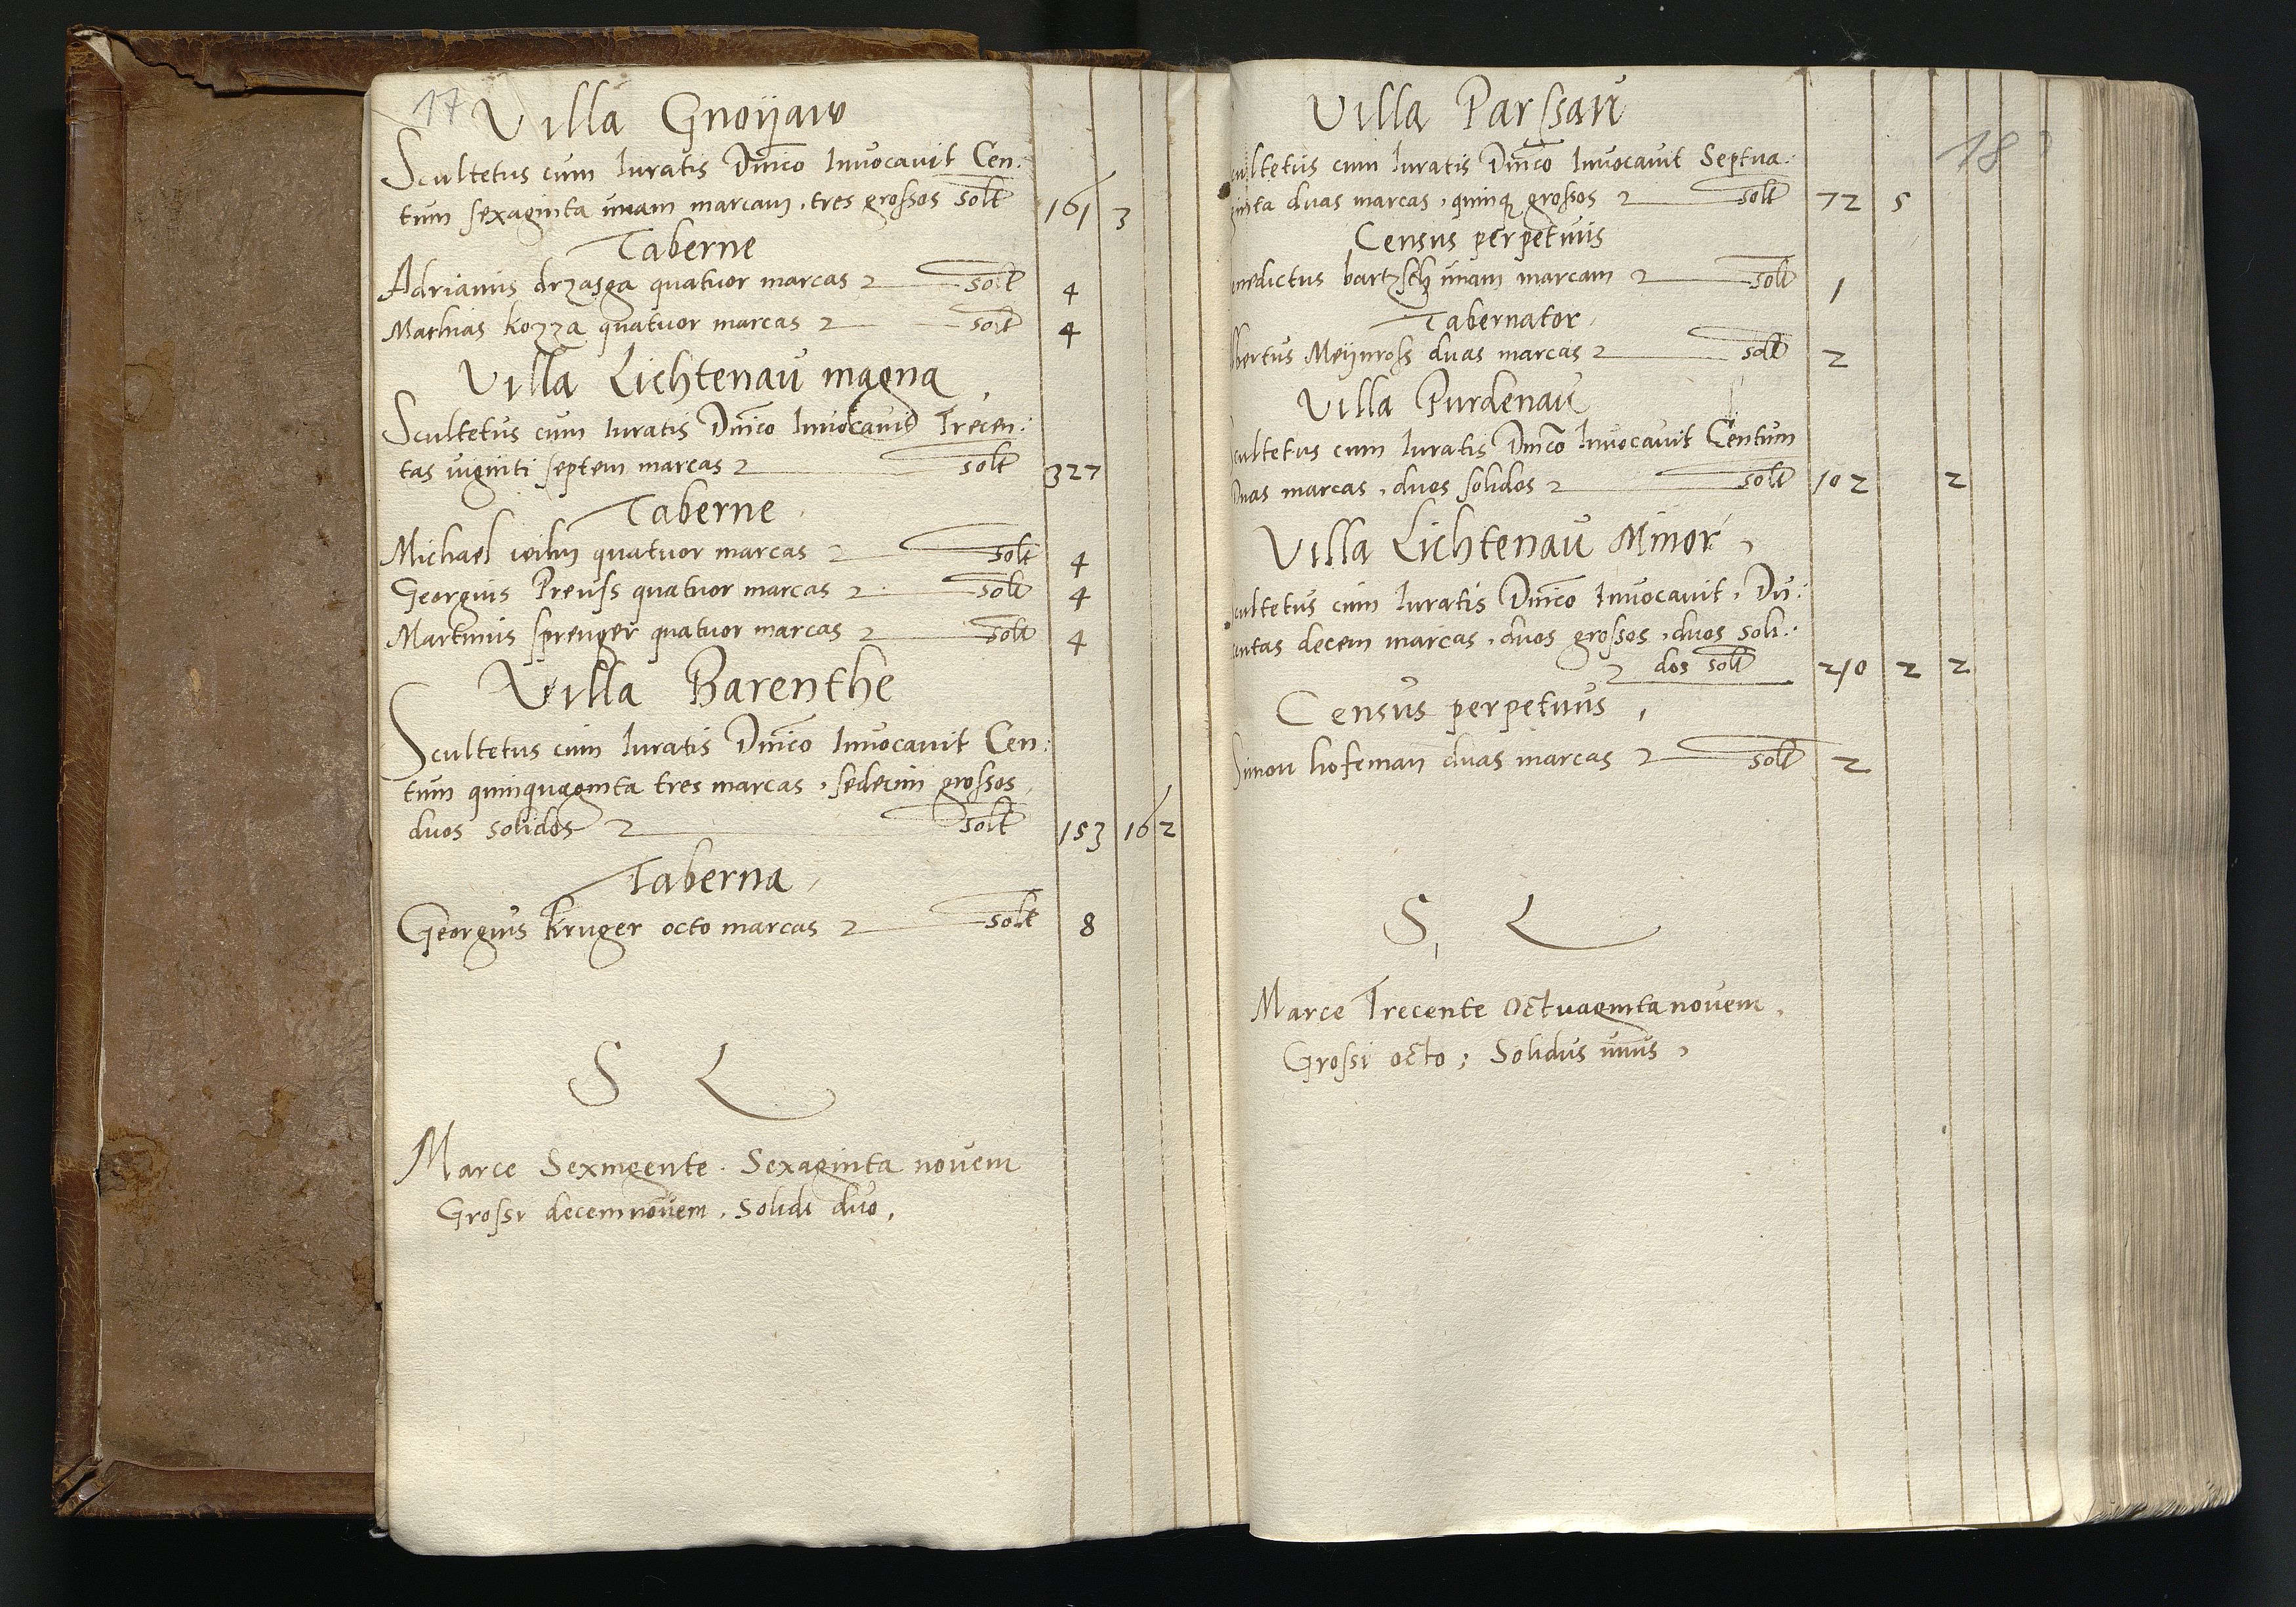 17
Villa Gnoÿaw
Scultetus cum Iuratis Dnico Invocavit Cen:
tum sexaginta unam marcam, tres grossos solt 161 3
Taberne
Adrianus drzasga quatuor marcas solt 4
Mathias kozza quatuor marcas solt 4
Villa Lichtenau magna
Scultetus cum Iuratis Dnico Invocavit Trecen:
tas viginti septem marcas solt 327
Taberne
Michael quatuor marcas solt 4
Georgius Preuss quatuor marcas solt 4
Martinus sprenger quatuor marcas solt 4
Villa Barenthe
Scultetus cum Iuratis Dnico Invocavit Cen:
tum quinquaginta tres marcas, sedecim grossos,
duos solidos solt 153 16 2
Taberna
Georgius kruger octo marcas solt 8
S L
Marce Sexingente. Sexaginta novem
Grossi decemnovem, Solidi duo,
18
Villa Parssau
cultetus cum Iuratis Dnico Invocavit Septua:
ginta duas marcas, quinq grossos solt 72 5
Census perpetuus
enedictus bartzsch unam marcam solt 1
Tabernator
lbertus Meÿnross duas marcas solt 2
Villa Purdenau
cultetus cum Iuratis Dnico Invocavit Centum
Duas marcas, duos solidos solt 102 2
Villa Lichtenau Minor,
cultetus cum Iuratis Dnico Invocavit, Du:
centas decem marcas, duos grossos, duos soli:
dos solt 210 2 2
Census perpetuus,
Simon hofeman duas marcas solt 2
S, L
Marce Trecente Octuaginta novem,
Grossi octo; Solidus unus,